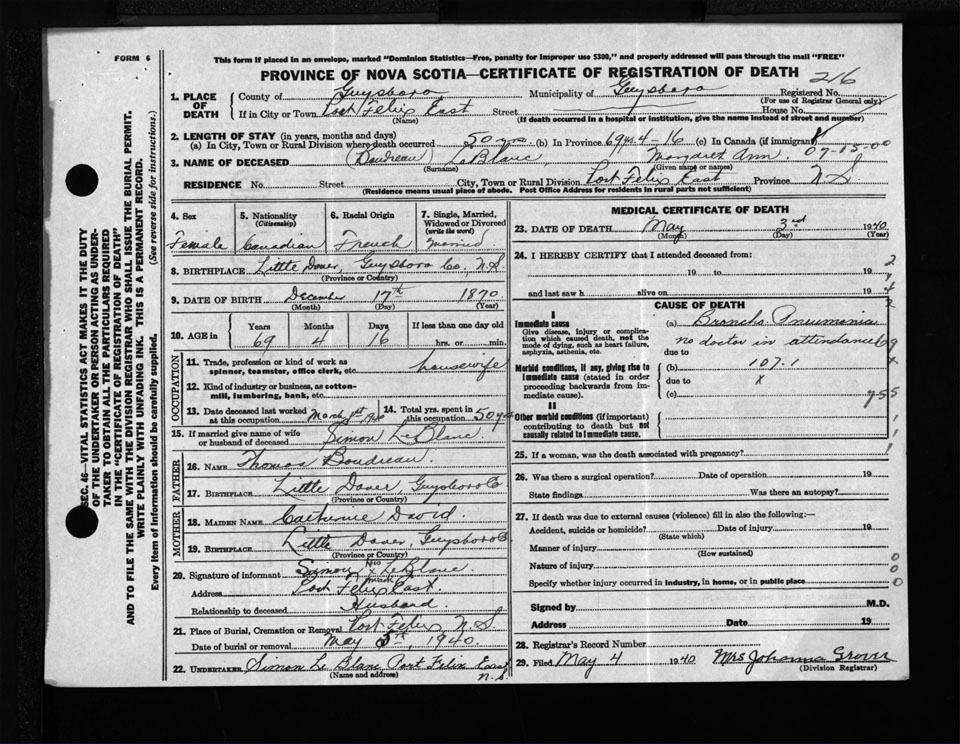 FORM 6
This form if placed in an envelope, marked "Dominion Statistics—Free, penalty for improper use $300," and properly addressed will pass through the mail "FREE"
PROVINCE OF NOVA SCOTIA—CERTIFICATE OF REGISTRATION OF DEATH 216
1. PLACE OF DEATH County of Guysboro Municipality of Guysboro Registered No.
(For use of Registrar General only)
If in City or Town Port Felix East Street House No.
(Name) (If death occurred in a hospital or institution, give the name instead of street and number)
2. LENGTH OF STAY (in years, months and days)
(a) In City, Town or Rural Division where death occurred 50 yrs. (b) In Province 69 yrs 4 - 16 (c) In Canada (if immigrant)
07-15-00
3. NAME OF DECEASED (Boudreau) LeBlanc Margaret Ann.
(Surname) (Given name or names)
RESIDENCE No. Street City, Town or Rural Division Port Felix East Province N S
(Residence means usual place of abode. Post Office Address for residents in rural parts not sufficient)
4. Sex Female
5. Nationality (Citizenship) Canadian
6. Racial Origin French
7. Single, Married, Widowed or Divorced (write the word) Married
8. BIRTHPLACE Little Dover, Guysboro Co. N.S.
(Province or Country)
9. DATE OF BIRTH December 17th 1870
(Month) (Day) (Year)
10. AGE in Years 69 Months 4 Days 16 If less than one day old hrs. or min.
OCCUPATION
11. Trade, profession or kind of work as spinner, teamster, office clerk, etc. housewife
12. Kind of industry or business, as cotton-mill, lumbering, bank, etc.
13. Date deceased last worked at this occupation March 1st 1940
14. Total yrs. spent in this occupation 50 yrs
15. If married give name of wife or husband of deceased Simon LeBlanc
FATHER
16. NAME Thomas Boudreau.
17. BIRTHPLACE Little Dover, Guysboro Co
(Province or Country)
MOTHER
18. MAIDEN NAME Catherine David.
19. BIRTHPLACE Little Dover, Guysboro Co.
(Province or Country)
20. Signature of informant Simon his x mark LeBlanc
Address Port Felix East.
Relationship to deceased Husband.
21. Place of Burial, Cremation or Removal Port Felix N.S.
Date of burial or removal May 5th, 1940.
22. UNDERTAKER Simon Le Blanc Port Felix East N.S.
(Name and address)
MEDICAL CERTIFICATE OF DEATH
23. DATE OF DEATH May 2nd 1940
(Month) (Day) (Year)
24. I HEREBY CERTIFY that I attended deceased from:
19 to 19
and last saw h alive on 19
CAUSE OF DEATH
I
Immediate cause
Give disease, injury or complication which caused death, not the mode of dying, such as heart failure, asphyxia, asthenia, etc.
(a) Broncho Pneumonia
no doctor in attendance
due to
Morbid conditions, if any, giving rise to immediate cause (stated in order proceeding backwards from immediate cause).
(b) 107.1
due to x
(c)
755
II
Other morbid conditions (if important) contributing to death but not causally related to immediate cause.
25. If a woman, was the death associated with pregnancy?
26. Was there a surgical operation? Date of operation 19
State findings Was there an autopsy?
27. If death was due to external causes (violence) fill in also the following:—
Accident, suicide or homicide? Date of injury 19
(State which)
Manner of injury
(How sustained)
Nature of injury
Specify whether injury occurred in industry, in home, or in public place
Signed by M.D.
Address Date 19
28. Registrar's Record Number
29. Filed May 4 1940 Mrs Johanna Grover
(Division Registrar)
SEC. 46—VITAL STATISTICS ACT MAKES IT THE DUTY
OF THE UNDERTAKER OR PERSON ACTING AS UNDER-
TAKER TO OBTAIN ALL THE PARTICULARS REQUIRED
IN THE "CERTIFICATE OF REGISTRATION OF DEATH"
AND TO FILE THE SAME WITH THE DIVISION REGISTRAR WHO SHALL ISSUE THE BURIAL PERMIT.
WRITE PLAINLY WITH UNFADING INK. THIS IS A PERMANENT RECORD.
Every item of information should be carefully supplied. (See reverse side for instructions.)